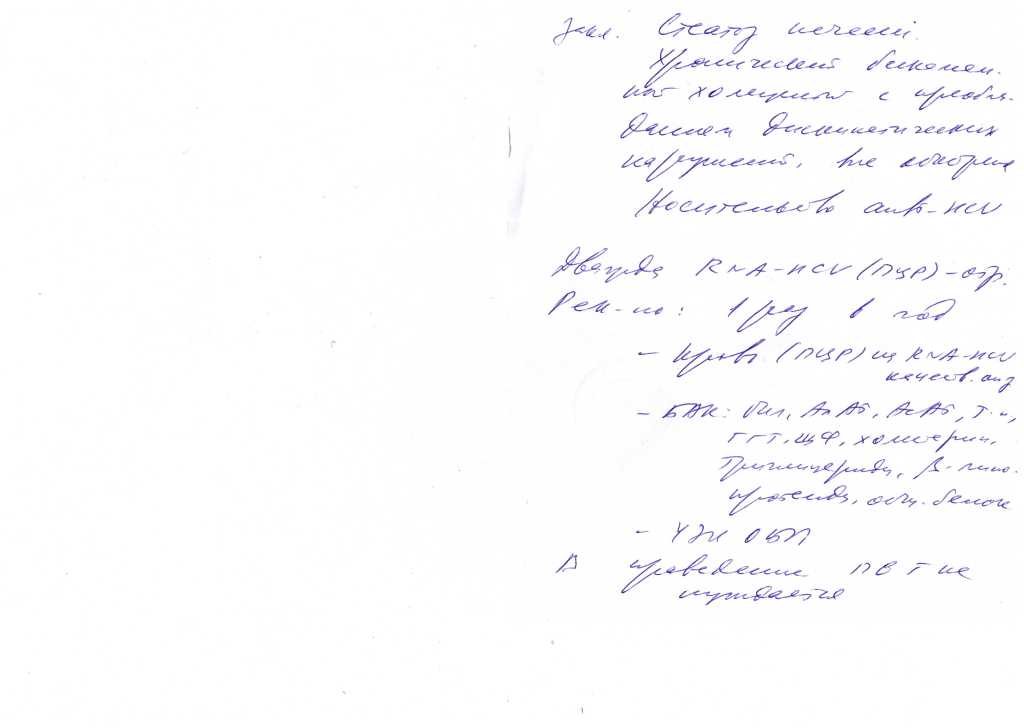 Закл. Стеатоз печени.
Хронический бескамен-
ный холецистит с преобла-
данием дискинетических
нарушений, вне обострения
Носительство anti-HCV
Дважды RNA-HCV (ПЦР) - отр.
Рек-но: 1 раз в год
- кровь (ПЦР) на RNA-HCV
качеств. ан
- БАК: бил, АлАТ, АсАТ, т.п,
ГГТ, ЩФ, холестерин,
триглицериды, β-липо-
протеиды, общ. белок
- УЗИ ОБП
В проведении ПВТ не
нуждается